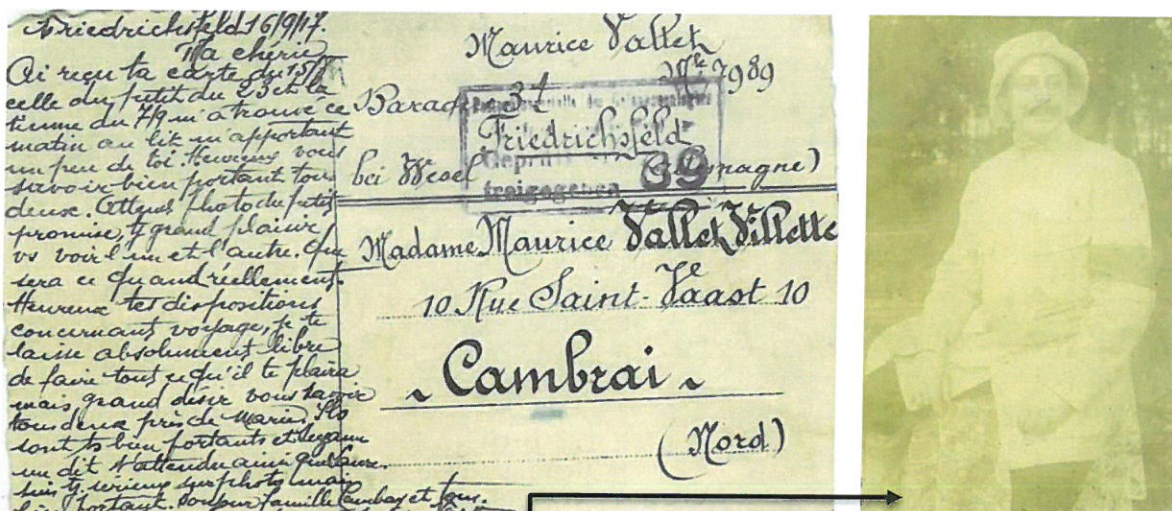 Friedrichsfeld 16/9/17.
Ma chérie
Ai reçu ta carte du 15/8
celle du petit du 23 et la
tienne du 7/9 m'a trouvé ce
matin au lit m'apportant
un peu de toi. Heureux vous
savoir bien portant tous
deux. Attends photo du petit
promise, q grand plaisir
vs voir l'un et l'autre. Que
sera ce quand réellement.
Heureux tes dispositions
concernant voyage, je te
laisse absolument libre
de faire tout ce qu'il te plaira
mais grand désir vous savoir
tous deux près de Marie. Ils
sont ts bien portants et
un dit t'attendre ainsi que
suis ts sérieux sur photo mais
bien portant. famille Cambay et tous.
Maurice Vallet
Mle 7989
Baraque 31
Friedrichsfeld
bei Wesel (Allemagne)
Geprüft
freigegeben 69
Madame Maurice Vallet Villette
10 Rue Saint-Vaast 10
Cambrai
(Nord)